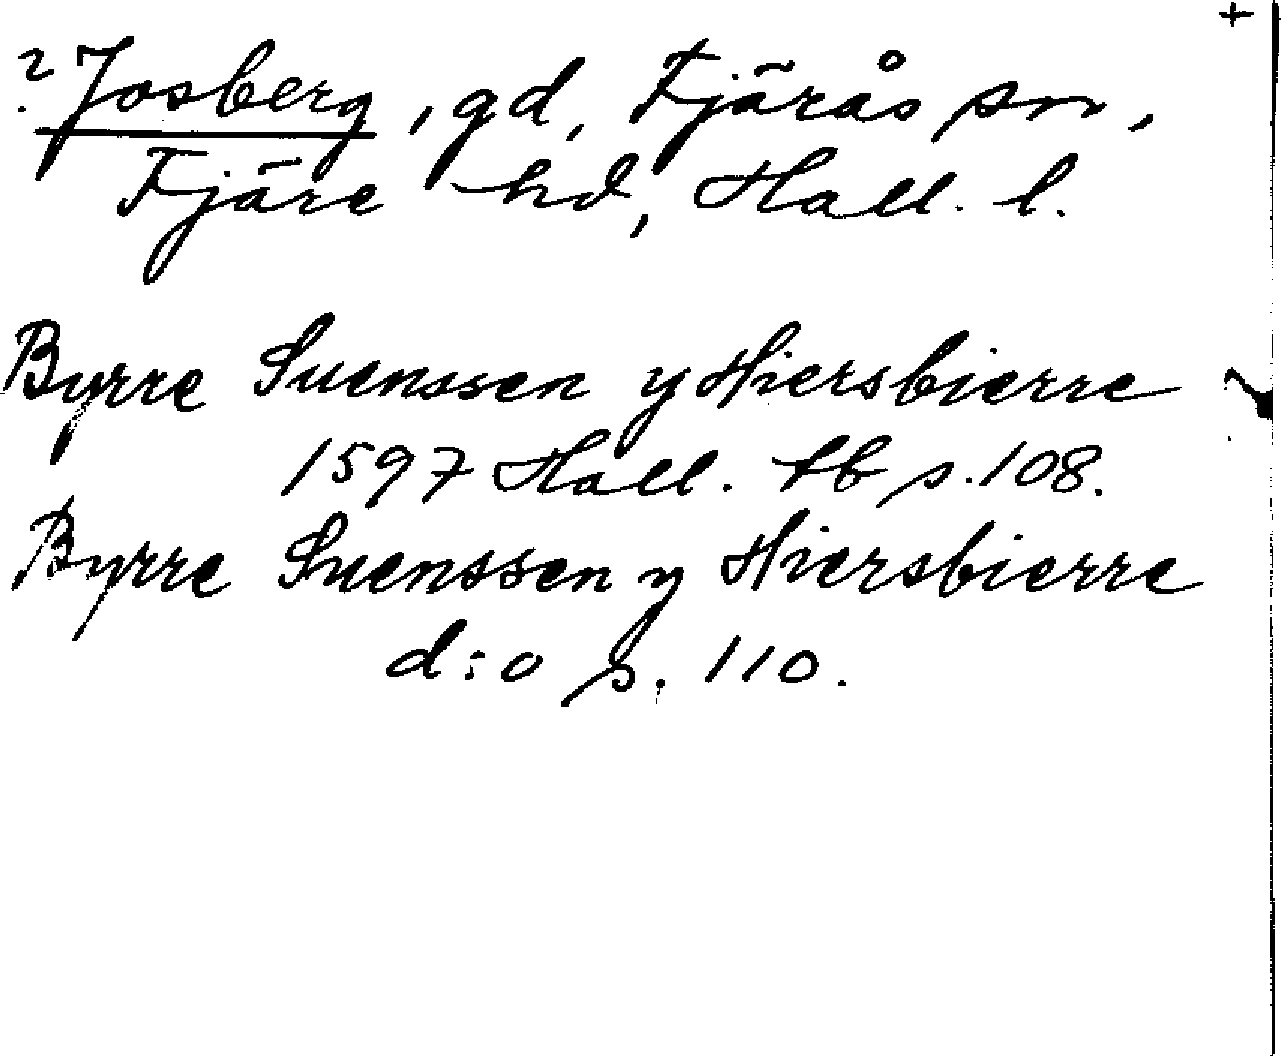 +
? Josberg, gd, Fjärås sn,
Fjäre hd, Hall. l.
Byrre Suenssen y Hiersbierre
1597 Hall. tb s. 108.
Byrre Suenssen y Hiersbierre
d:o s. 110.